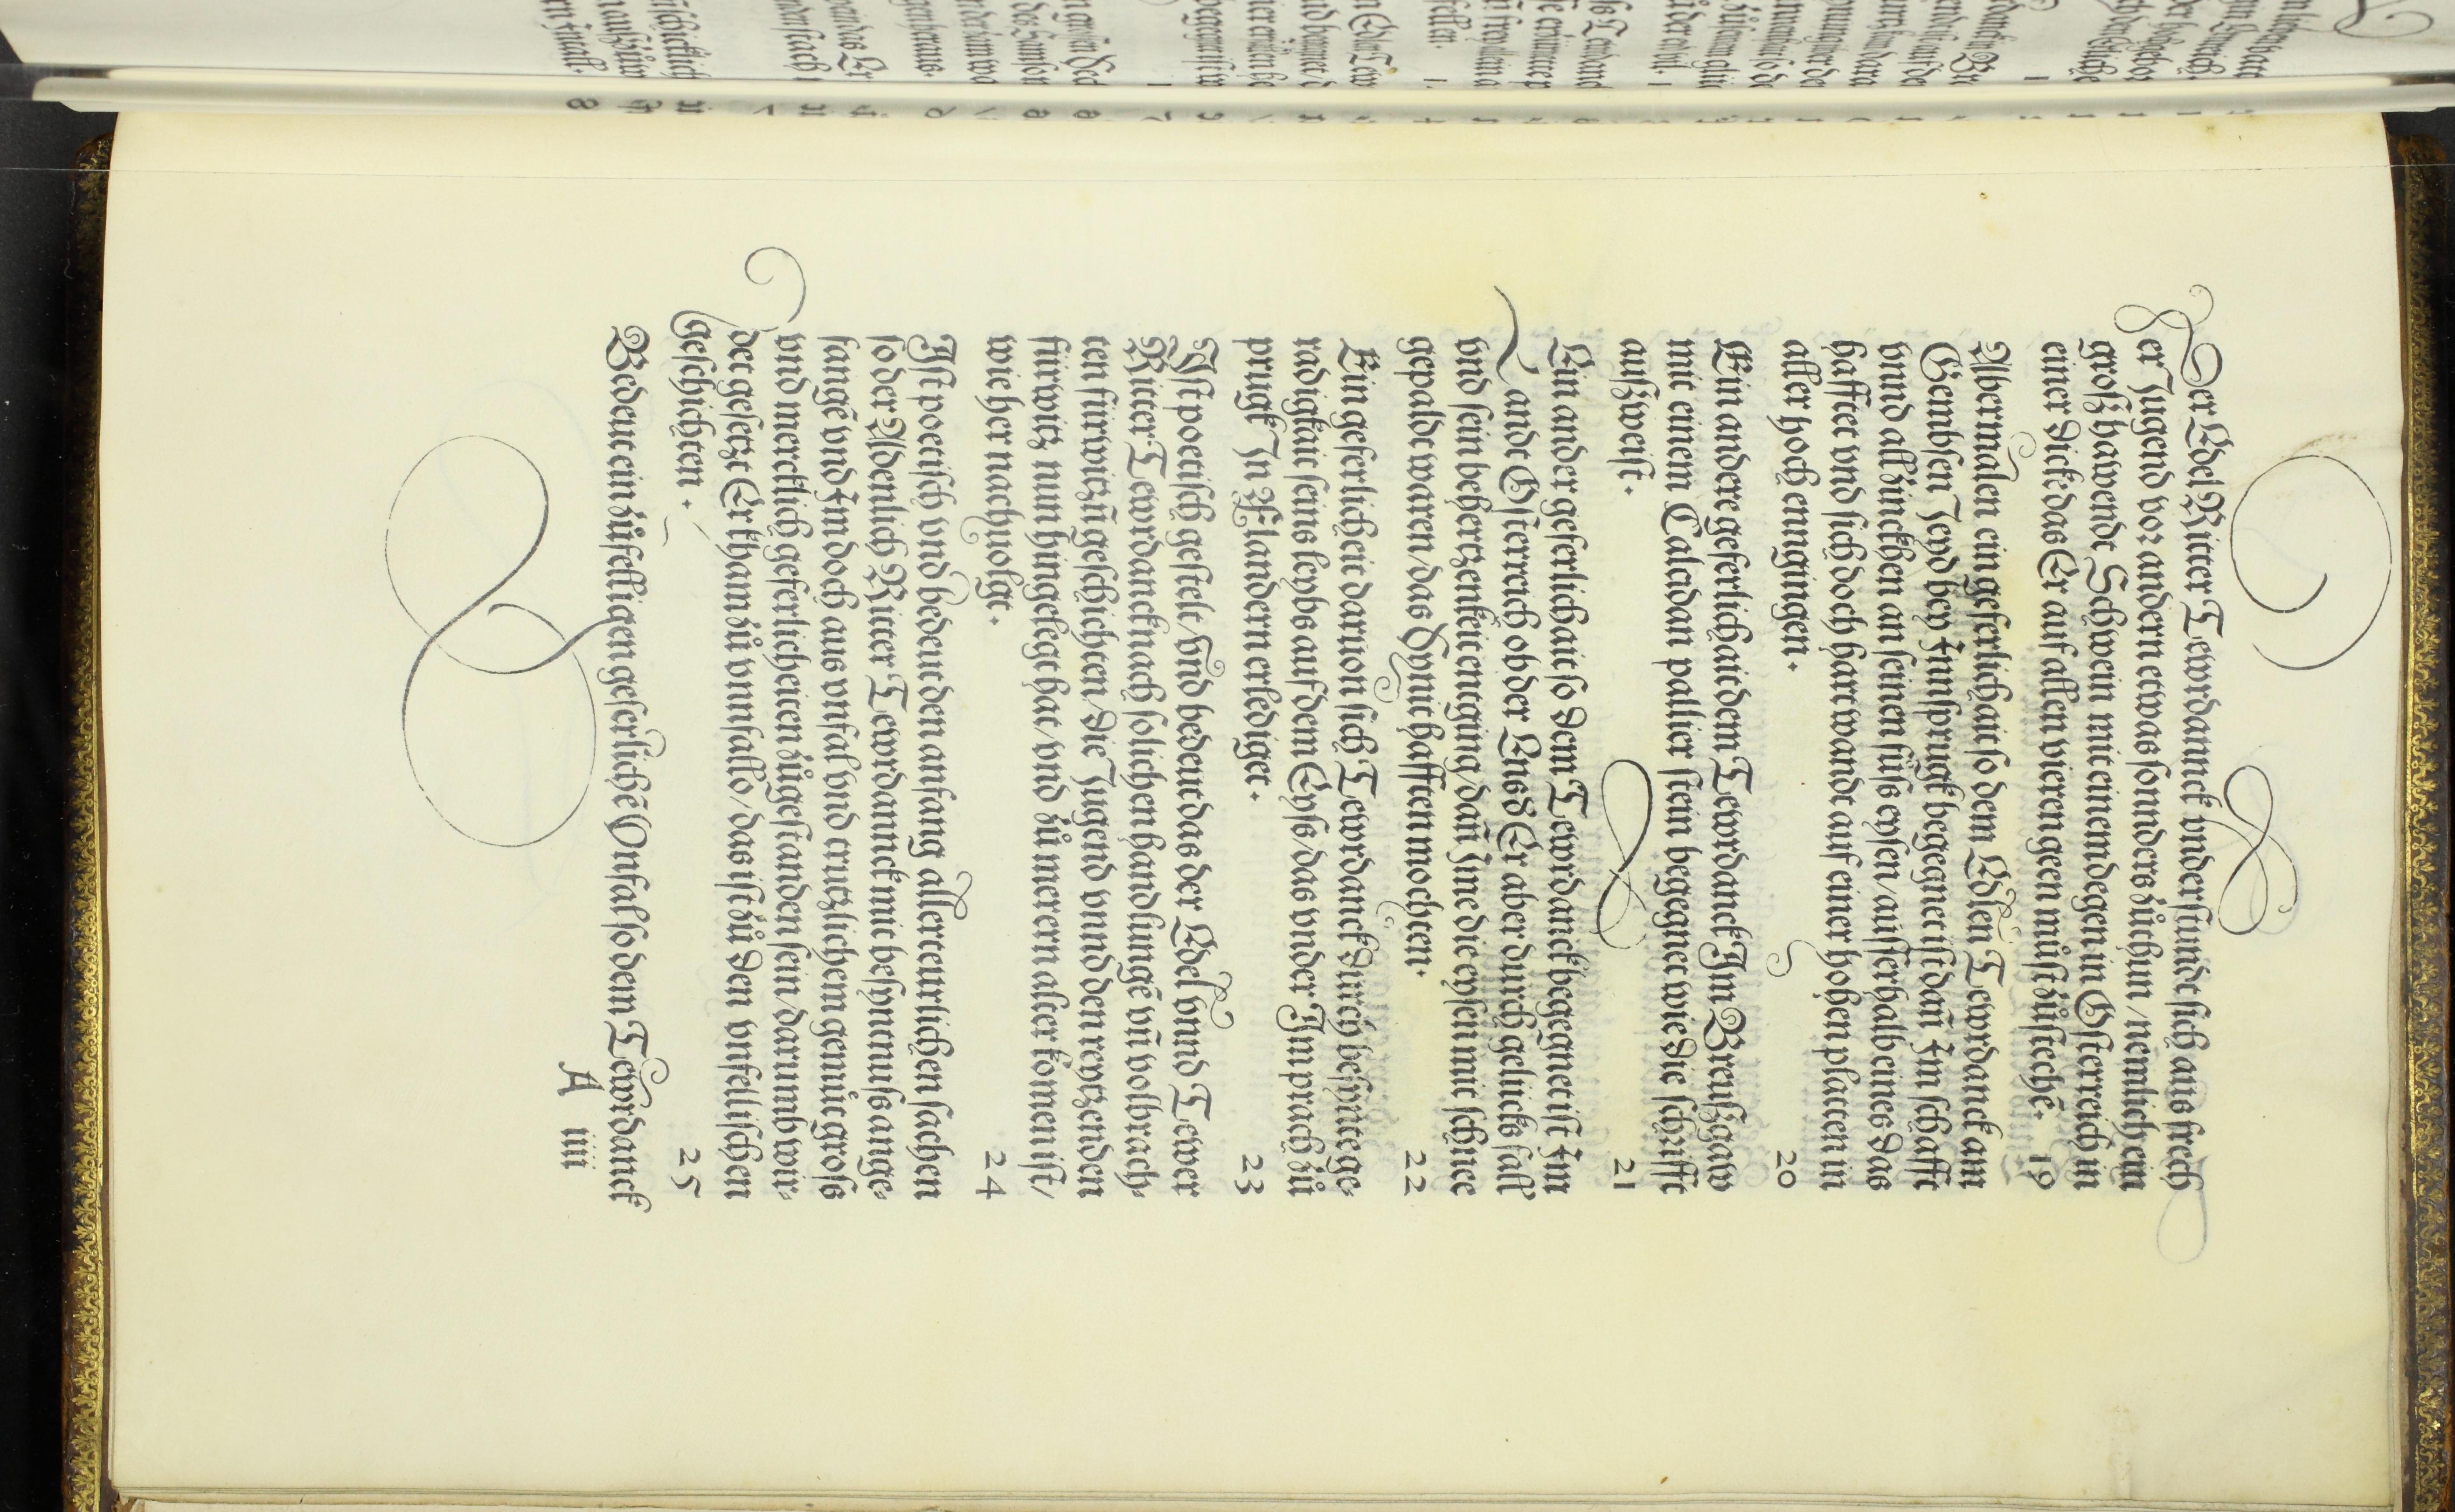 Der Edel Ritter Tewrdannck vnderstundt sich aus frech
er Jugend vor andern etwas sonnders zůthun / nemlich ein
groß hawendt Schwein mit einem degen in Österreich in
einer dicke das Er auf allen vieren geen můst zůstechē. 19
Abermalen ein geferlichait so dem Edlen Tewrdanck am
Gembsen Jeyd bey Innsprugk begegnet ist dañ Im schafft
vnnd all zinckhen an seinen füss eysen / ausserhalb eines das
hafftet vnd sich doch hart wandt auf einer hohen platten in
aller hoch enngingen. 20
Ein andere geferlichait dem Tewrdanck Im Breußgaw
mit einem Tal[e]dan pallier stein begegnet wie die schrifft
außweist. 21
Ein ander geferlichait so dem Tewrdanck begegnet ist Im
Landt Österreich ob der Enns Er aber durch gelücks fall
vnd sein behertzenkeit entging / dañ Ime die eysen mit schnee
gepaldt waren / das dy nit hafften mochten. 22
Ein geferlicheit daruon sich Tewrdanck durch behennde ge-
radigkait seins leybs auf dem Eyß / das vnder Im prach zů
prugk In Flandern erlediget. 23
Ist poetisch gestelt / vnd bedeut das der Edel vnnd Tewer
Ritter Tewrdanck nach solichen handlungē vñ volbrach-
ten fürwitzñ geschichten / die Jugend vnnd den reytzenden
fürwitz nun hingelegt hat / vnd zů merern alter komen ist /
wie her nach volgt. 24
Ist poetisch vnd bedeut den anfang aller eenrlichen sachen
so der Adenlich Ritter Tewrdannck mit besynnuß ange-
fangē vnd Im doch aus vnfal vnd trutzlichem gemüt gross
vnd mercklich geferlicheiten zůgestanden sein / darumb wir-
det gesetzt Er kham zů vnnfallo / das ist zů den vnfellischen
geschichten. 25
Bedeut ein zůfelligen geferlichē Vnfal so dem Tewrdanck
A iiii